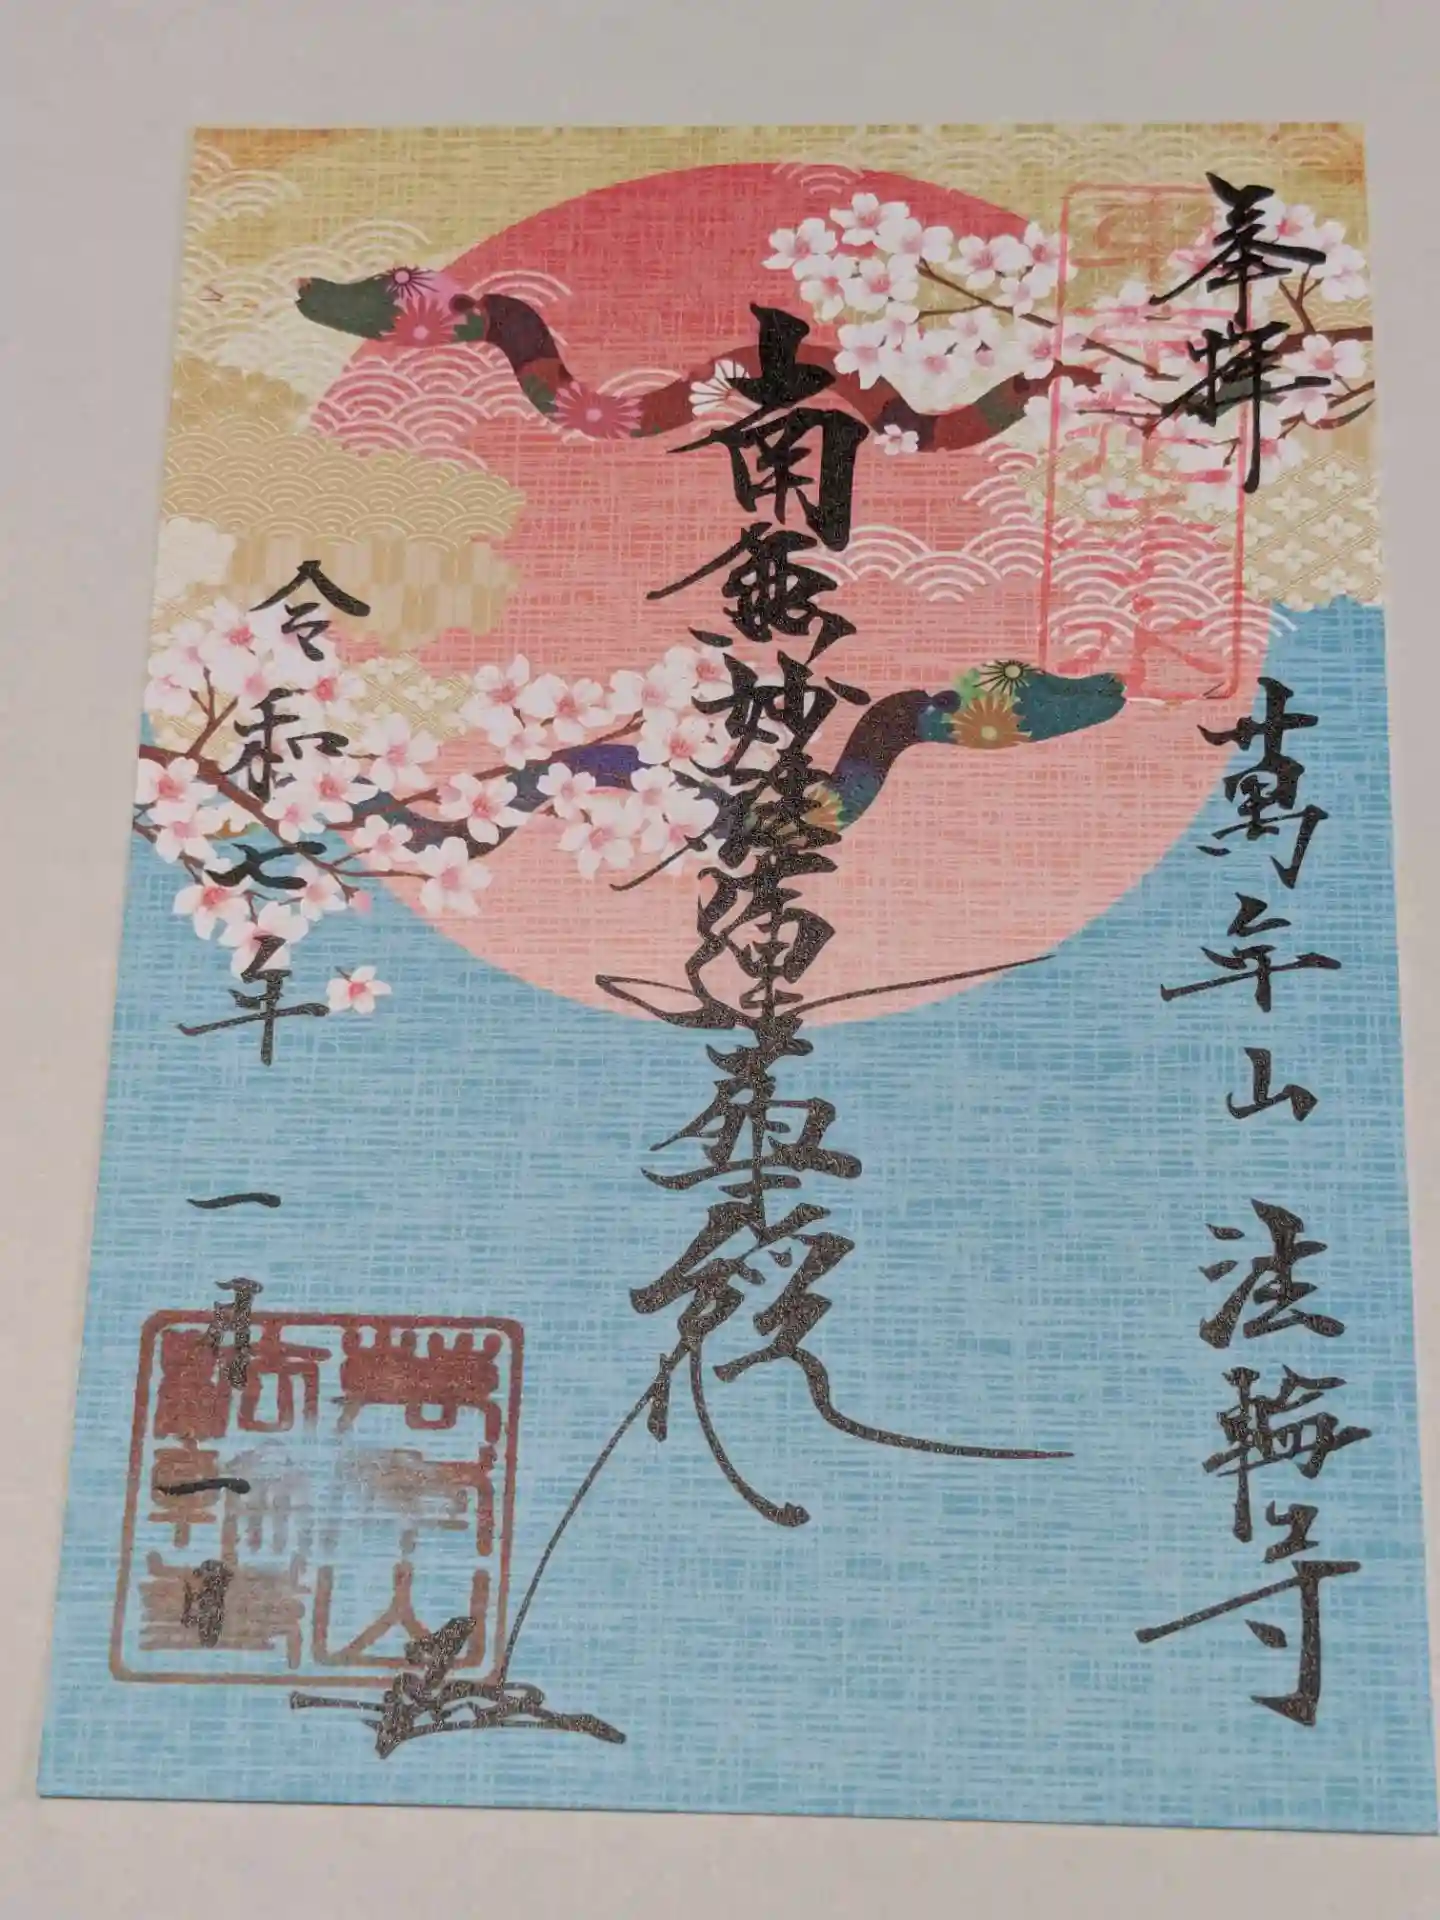 奉拝
萬年山 法輪寺
南無妙法蓮華経
令和七年 一月一日
萬年山